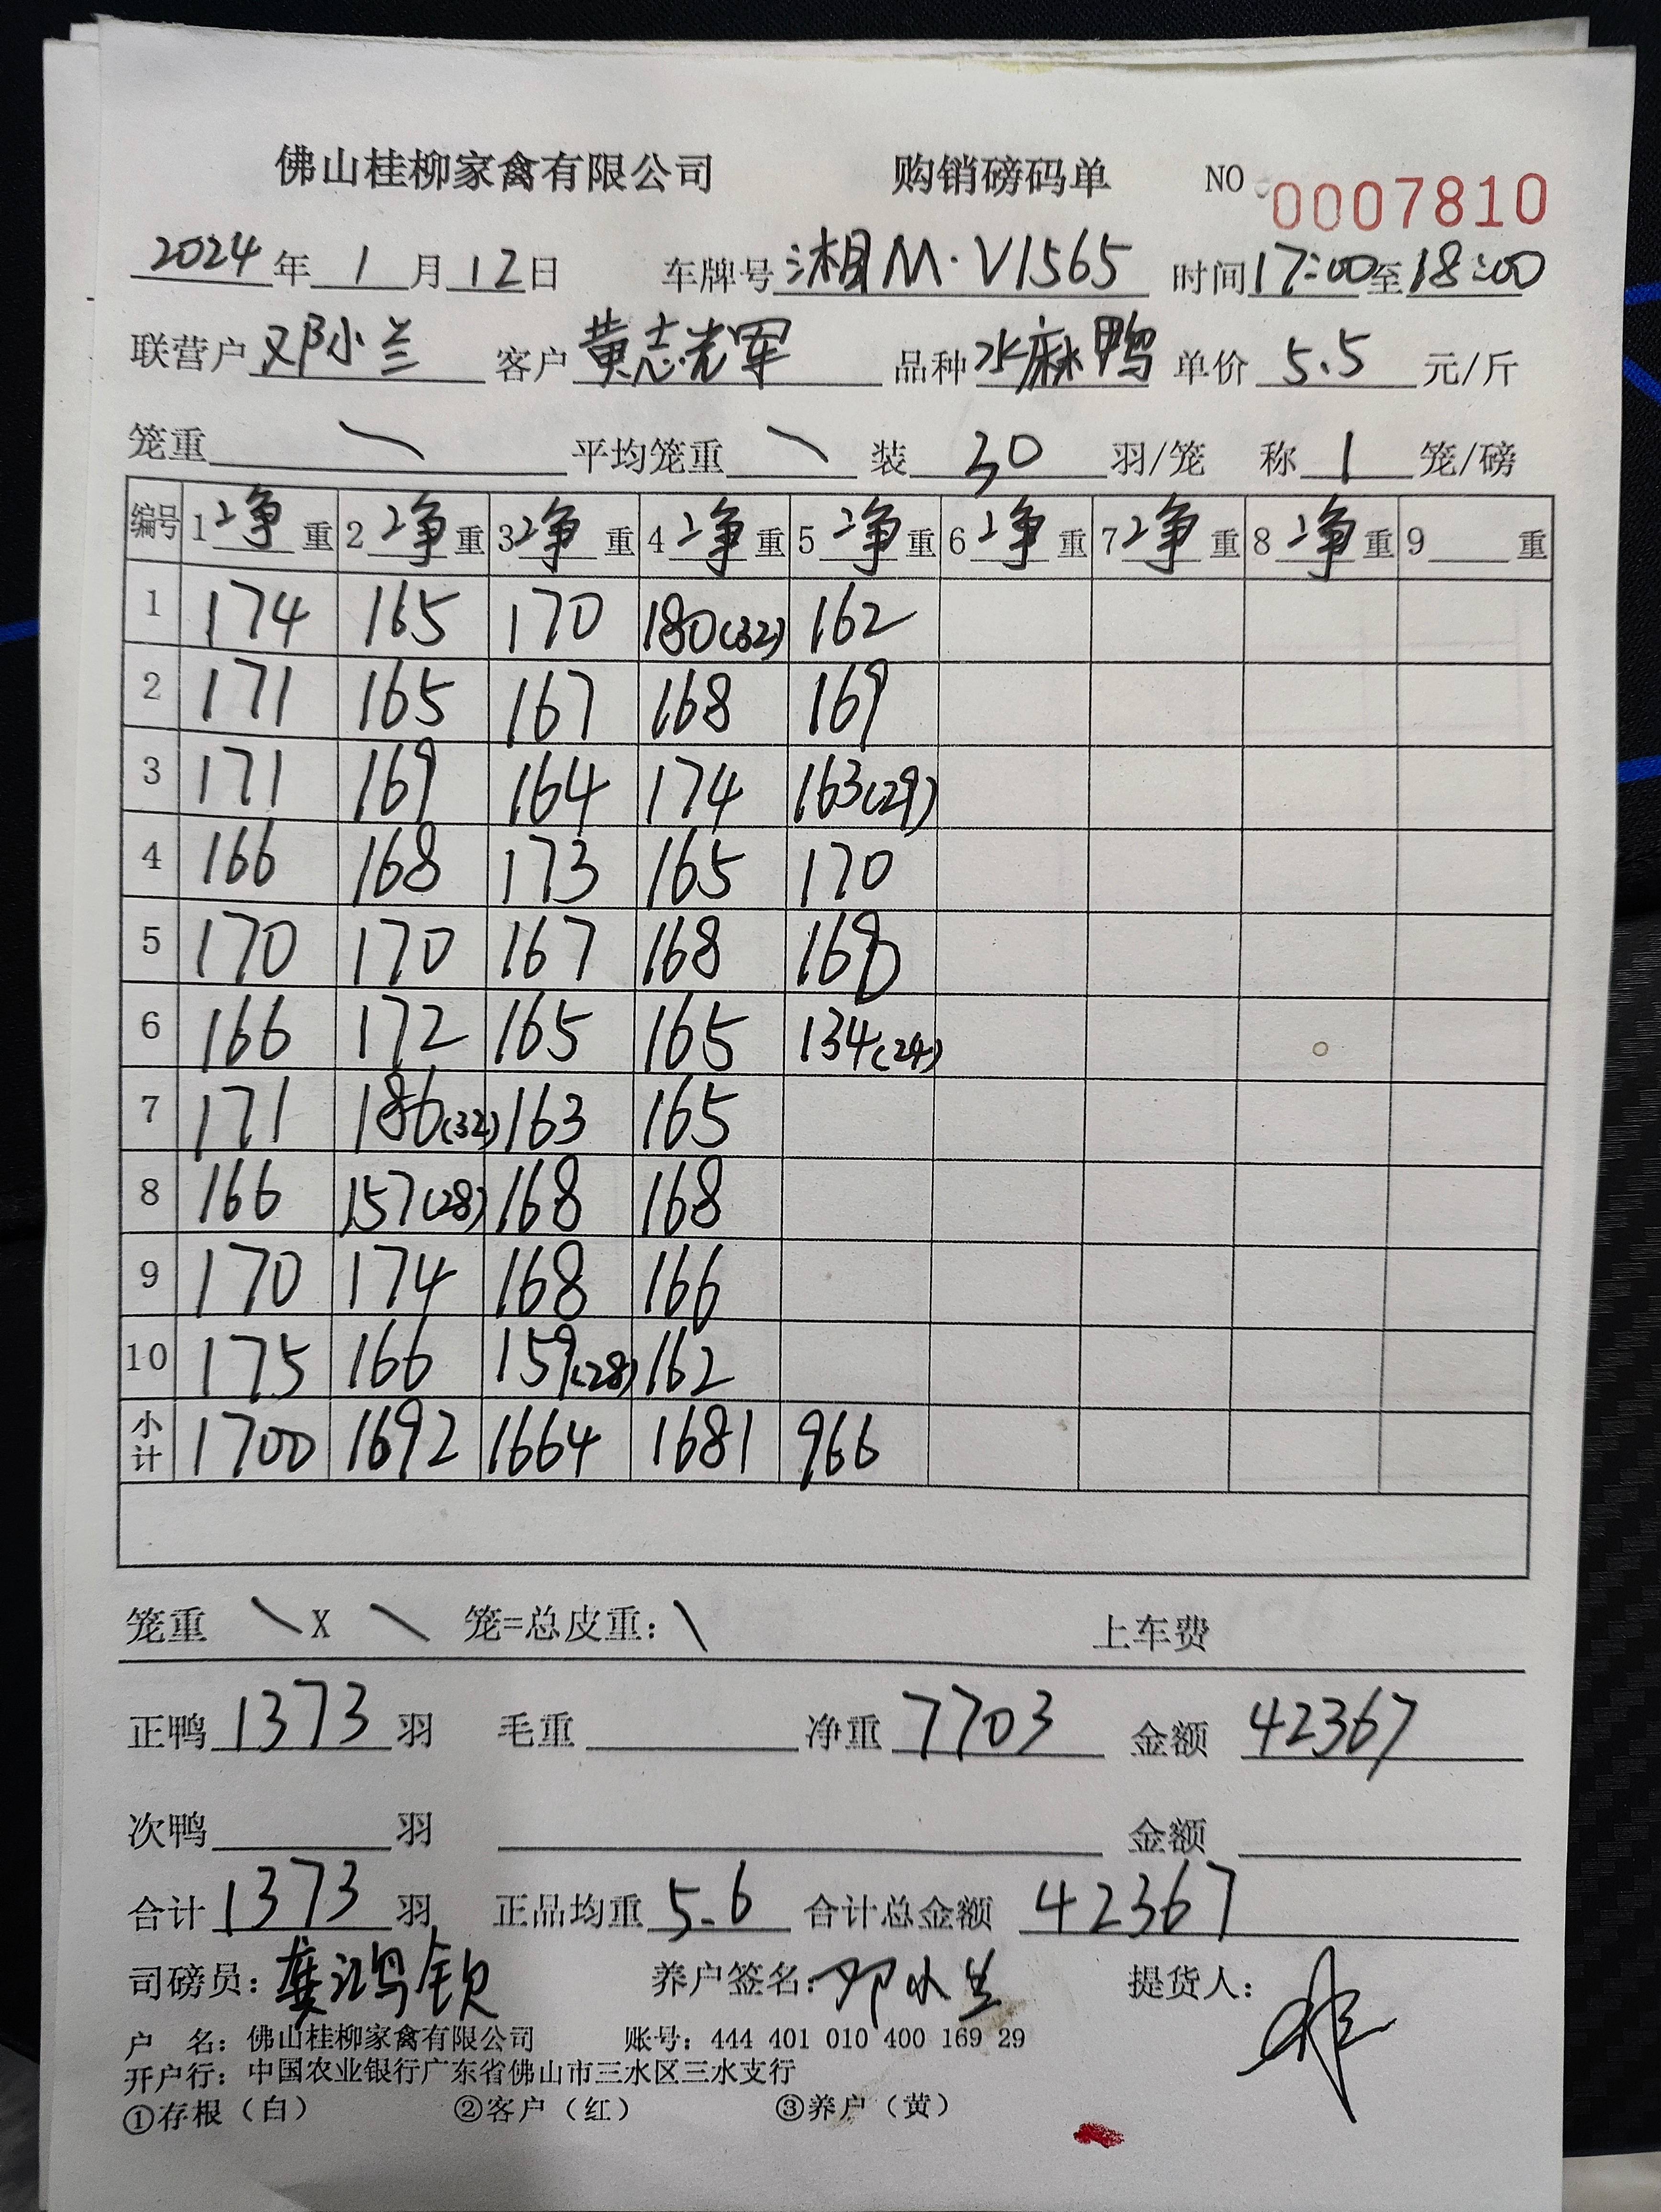 佛山桂柳家禽有限公司 购销磅码单 NO 0007810
2024年1月12日 车牌号湘M·V1565 时间17:00至18:00
联营户邓小兰 客户黄志光军 品种水麻鸭 单价5.5元/斤
笼重\ 平均笼重\ 装30羽/笼 称1笼/磅
编号 1净重 2净重 3净重 4净重 5净重 6净重 7净重 8净重 9重
1 174 165 170 180(32) 162
2 171 165 167 168 169
3 171 169 164 174 163(29)
4 166 168 173 165 170
5 170 170 167 168 168
6 166 172 165 165 134(24)
7 171 186(32) 163 165
8 166 157(28) 168 168
9 170 174 168 166
10 175 166 159(28) 162
小计 1700 1692 1664 1681 966
笼重\X\笼=总皮重:\ 上车费
正鸭1373羽 毛重 净重7703 金额42367
次鸭 羽 金额
合计1373羽 正品均重5.6 合计总金额42367
司磅员:龚鸿钦 养户签名:邓小兰 提货人:
户 名:佛山桂柳家禽有限公司 账号:444 401 010 400 169 29
开户行:中国农业银行广东省佛山市三水区三水支行
①存根（白） ②客户（红） ③养户（黄）